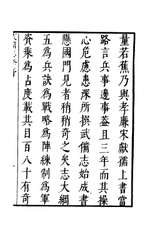 量若蕉乃與孝廉宋獻儒上書當
路言兵事邊事蓋且三年而其操
心危慮患深所撰武備志始成書
懸國門見者稍稍奇之矣志大綱
五為兵訣為戰略為陣練制為軍
資乘為占度載其目百八十有奇